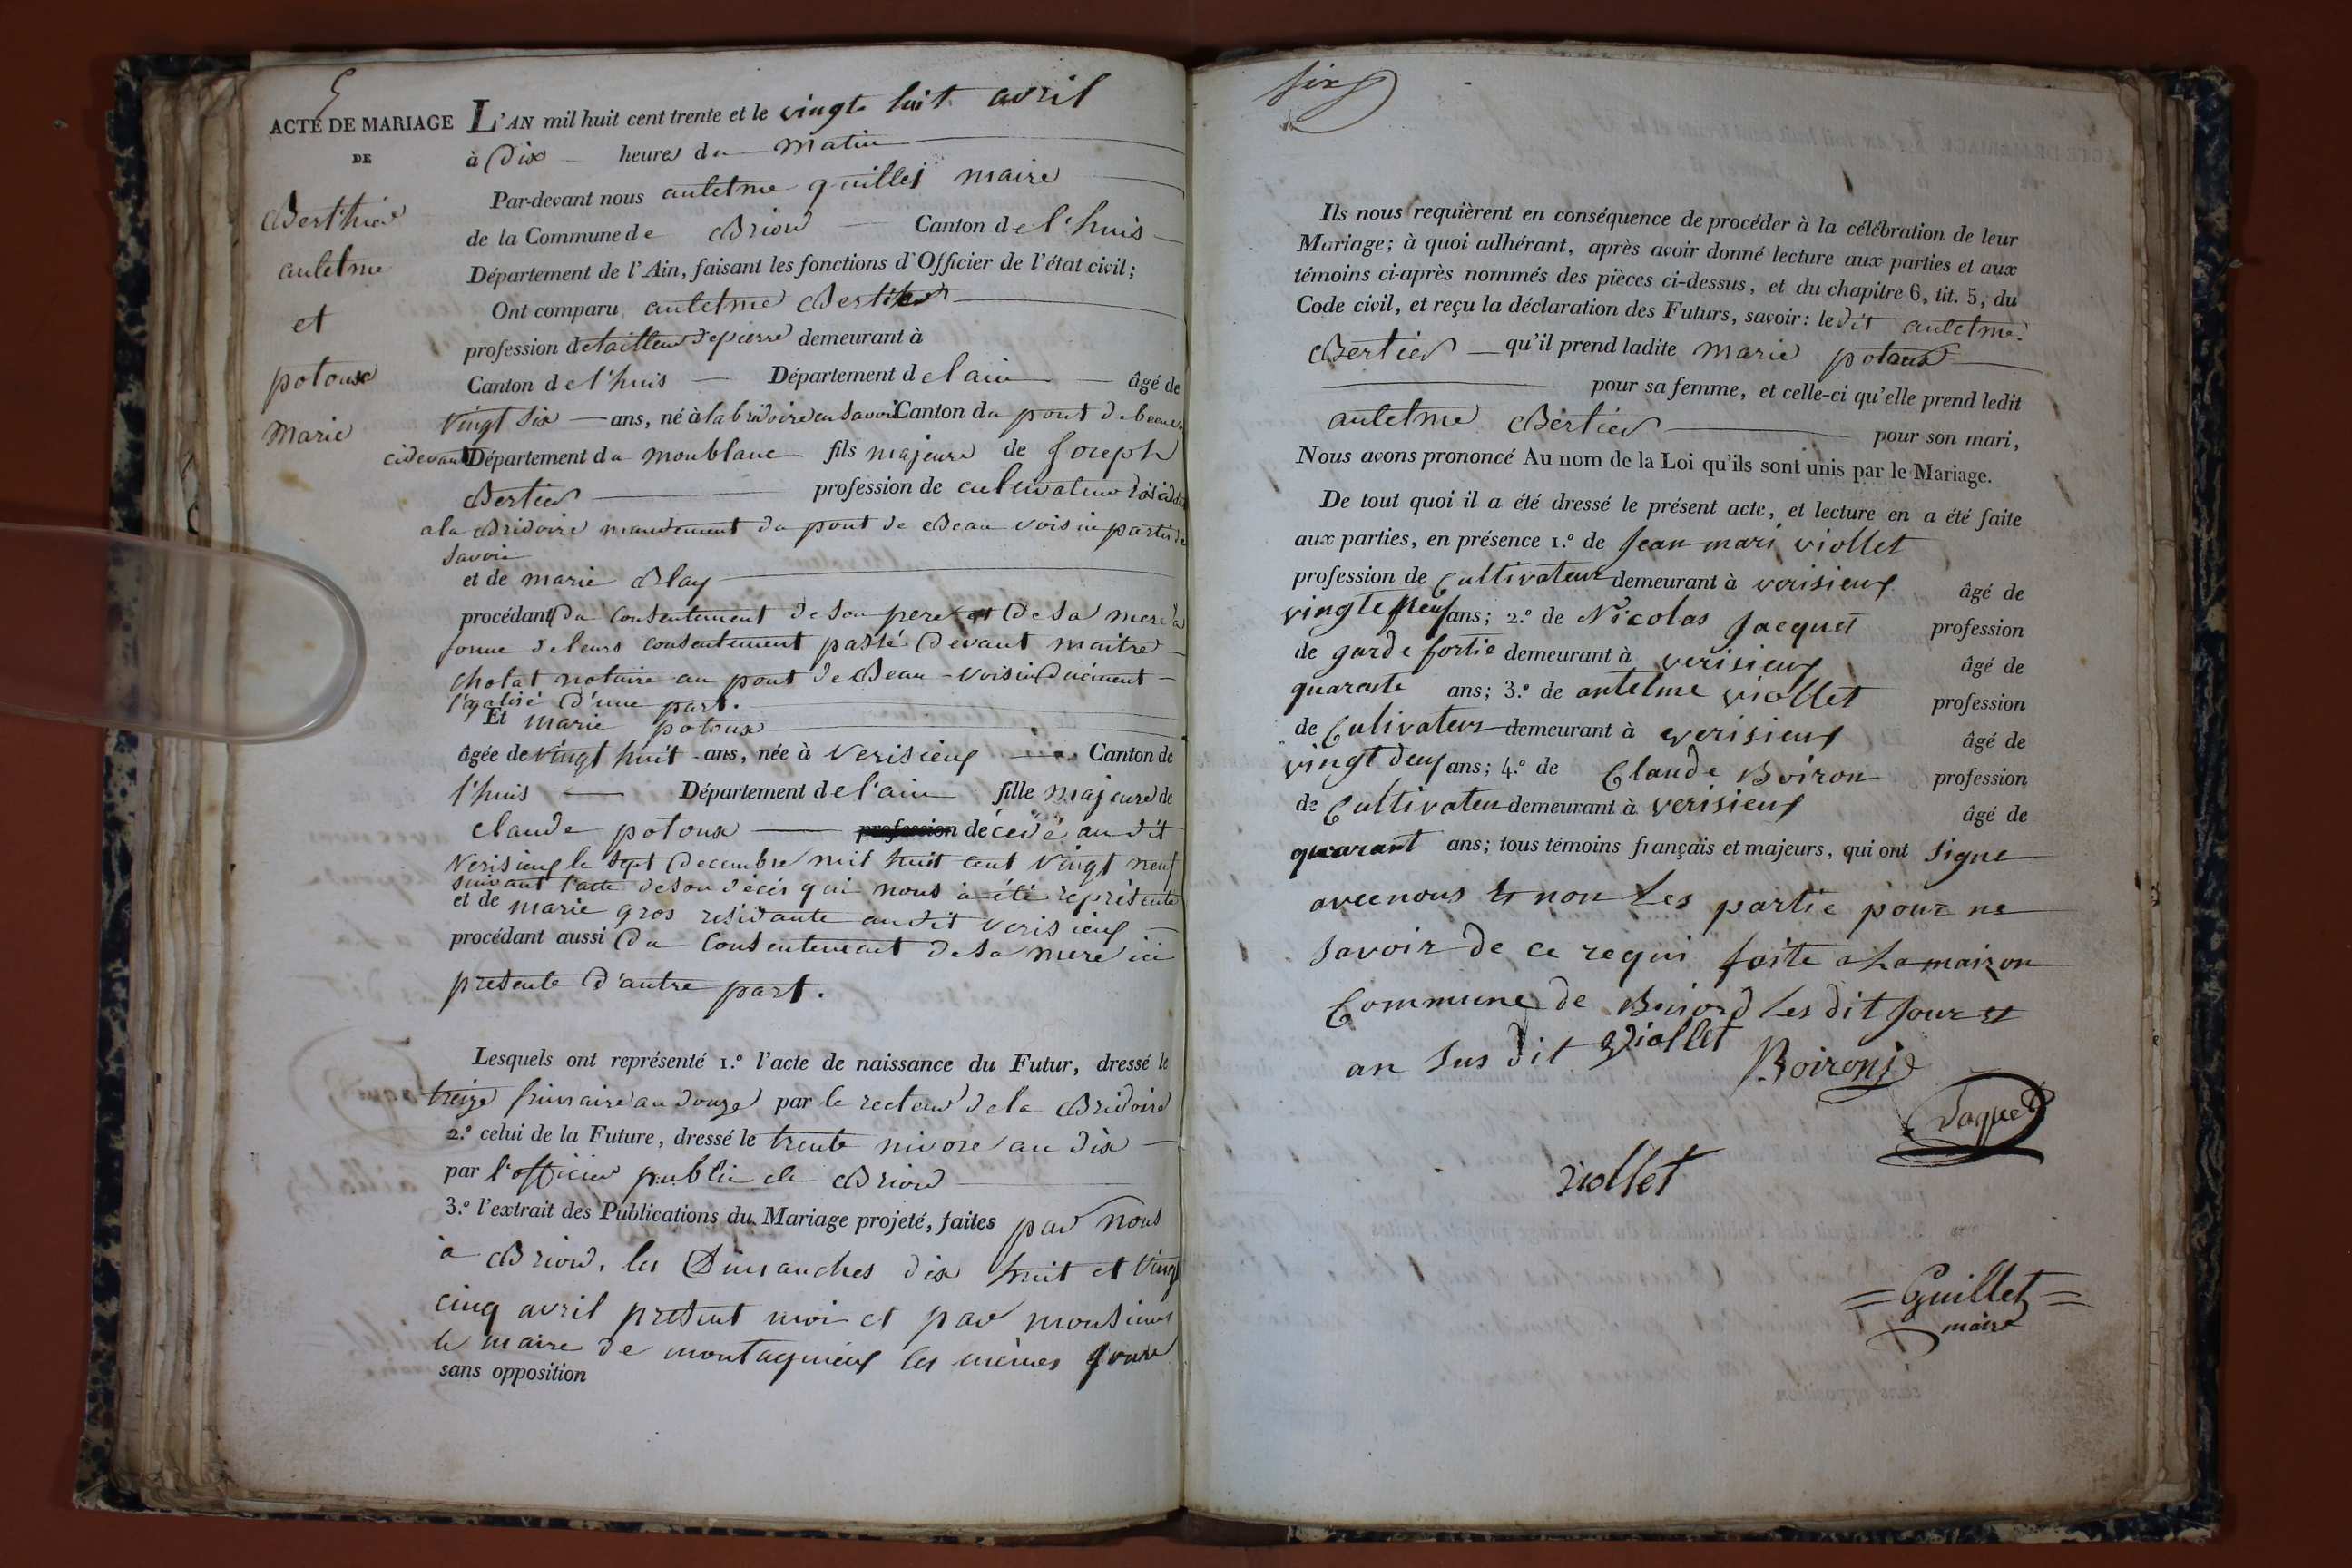 5
ACTE DE MARIAGE
DE
Berthier
antelme
et
potoux
Marie
L'AN mil huit cent trente et le vingt huit avril
à Dix heures du Matin
Par-devant nous antelme guillet maire
de la Commune de Briord Canton de l'huis
Département de l'Ain, faisant les fonctions d'Officier de l'état civil;
Ont comparu antelme Bertier
profession de tailleur de pierre demeurant à
Canton de l'huis Département de lain âgé de
vingt six ans, né à la bridoire en Savoie Canton du pont de beauv
cidevant Département du monblanc fils majeure de Joseph
Bertier profession de cultivateur résidant
a la Bridoire mandement du pont de Beau voisin partie de
Savoie
et de marie Blay
procédant du consentement de son pere et de sa mere a
forme de leurs consentement passé devant maitre
Cholat notaire au pont de Beau-voisin duement
légalisé d'une part.
Et marie potoux
âgée de vingt huit ans, née à verisieux Canton de
l'huis Département de l'ain fille majeure de
claude potoux profession décédé au dit
Verisieux le sept Decembre mil huit cent vingt neuf
suivant l'acte de son décès qui nous à été représenté
et de marie gros residante au dit verisieux
procédant aussi du consentement de sa mere ici
presente d'autre part.
Lesquels ont représenté 1.º l'acte de naissance du Futur, dressé le
treize frimaire an douze par le recteur de la Bridoire
2.º celui de la Future, dressé le trente nivose an dix
par l'officier public de Briord
3.º l'extrait des Publications du Mariage projeté, faites par nous
à Briord, les Dimanches dix huit et vingt
cinq avril présent moi et par monsieur
le maire de montagnieux les mêmes jours
sans opposition
six
Ils nous requièrent en conséquence de procéder à la célébration de leur
Mariage; à quoi adhérant, après avoir donné lecture aux parties et aux
témoins ci-après nommés des pièces ci-dessus, et du chapitre 6, tit. 5, du
Code civil, et reçu la déclaration des Futurs, savoir: ledit antelme
Bertier qu'il prend ladite Marie potoux
pour sa femme, et celle-ci qu'elle prend ledit
antelme Bertier pour son mari,
Nous avons prononcé Au nom de la Loi qu'ils sont unis par le Mariage.
De tout quoi il a été dressé le présent acte, et lecture en a été faite
aux parties, en présence 1.º de Jean mari viollet
profession de Cultivateur demeurant à verisieux âgé de
vingte neuf ans; 2.º de Nicolas Jacquet profession
de garde fortié demeurant à verisieux âgé de
quarante ans; 3.º de antelme viollet profession
de Culivateur demeurant à verisieux âgé de
vingt deux ans; 4.º de Claude Boiron profession
de Cultivateu demeurant à verisieux âgé de
quarant ans; tous témoins français et majeurs, qui ont signe
avec nous et non Les partie pour ne
savoir de ce requi faite a La maizon
Commune de Briord Les dit Jour et
an sus dit viollet
Boiron
Jaquet
viollet
Guillet
maire